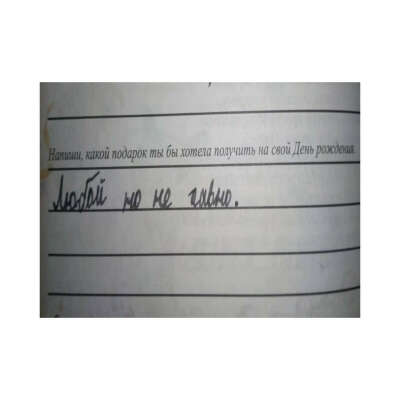 Напиши, какой подарок ты бы хотела получить на свой День рождения.
Любой но не гавно.